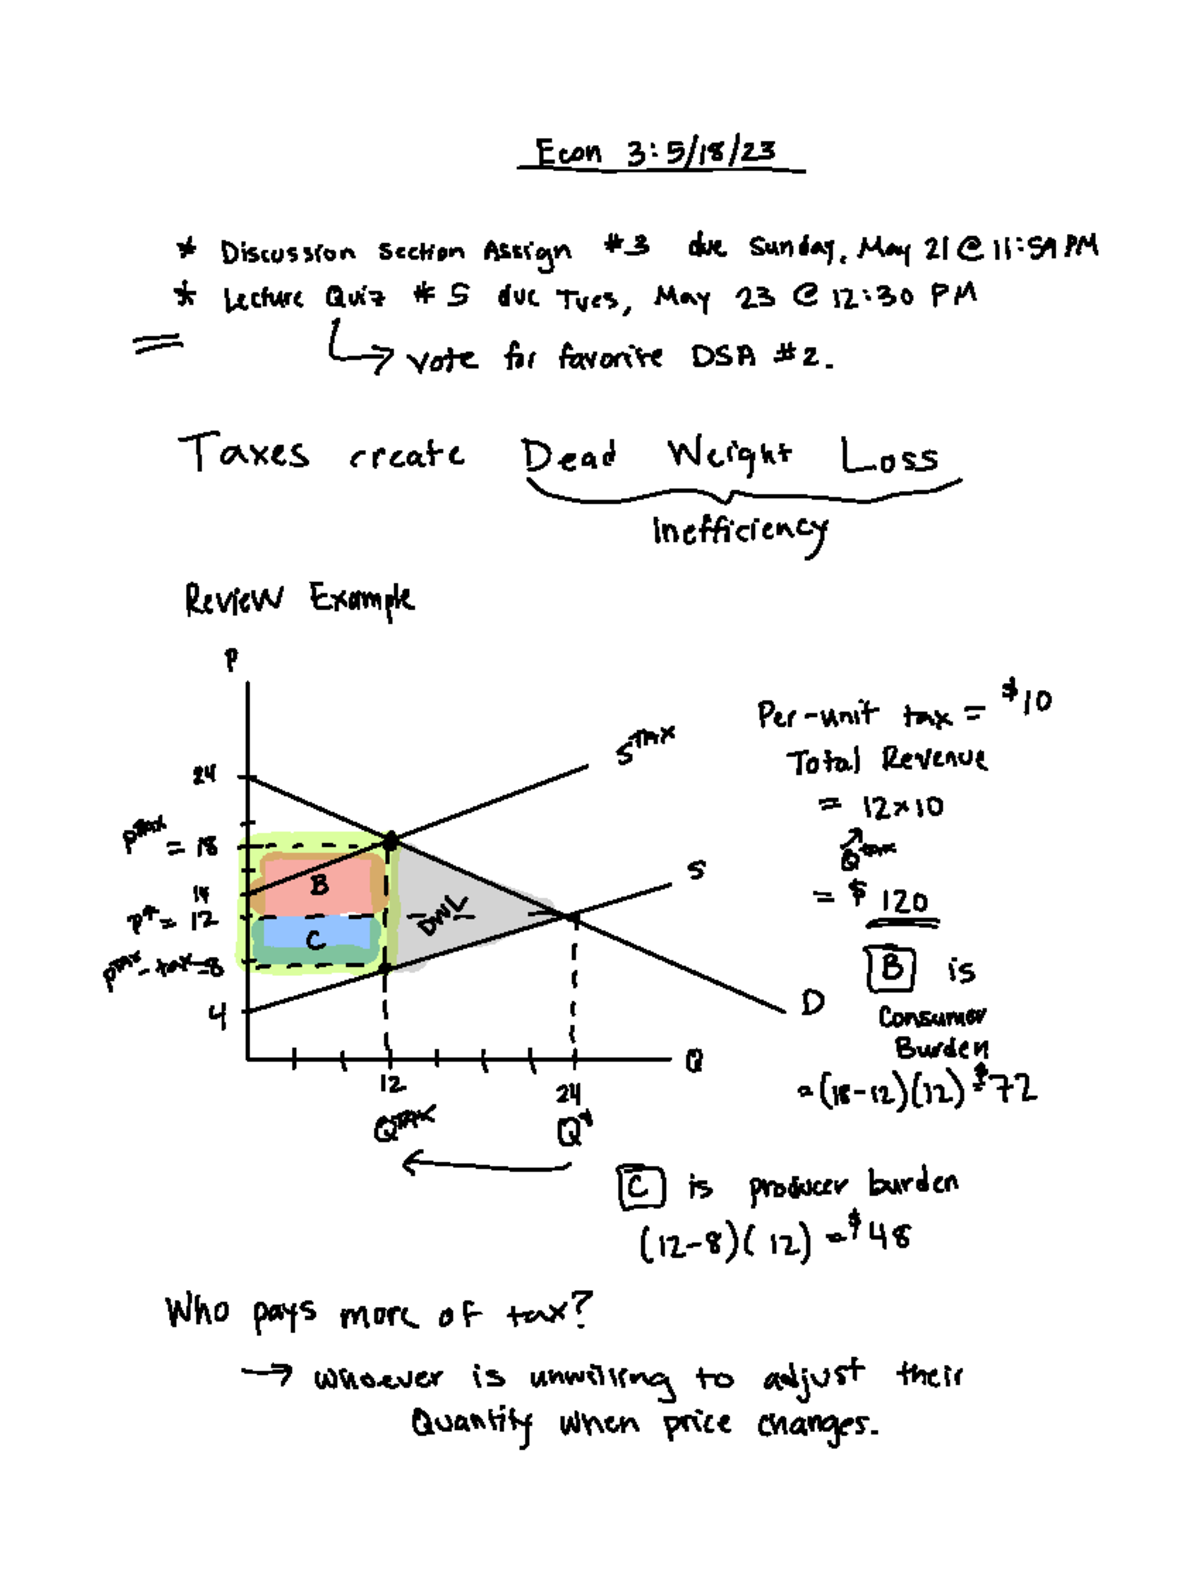 Econ 3: 5/18/23
* Discussion Section Assign #3 due Sunday, May 21 @ 11:59 PM
* Lecture Quiz #5 due Tues, May 23 @ 12:30 PM
→ vote for favorite DSA #2.
Taxes create Dead Weight Loss
Inefficiency
Review Example
P
24
P^Tax = 18
14
P* = 12
P^Tax - tax = 8
4
S^TAX
S
D
B
C
DWL
Q
12
24
Q^TAX
Q*
Per-unit tax = $10
Total Revenue
= 12 x 10
Q^tax
= $ 120
B is
Consumer
Burden
= (18-12)(12) = $72
C is producer burden
(12-8)(12) = $48
Who pays more of tax?
→ whoever is unwilling to adjust their
Quantity when price changes.